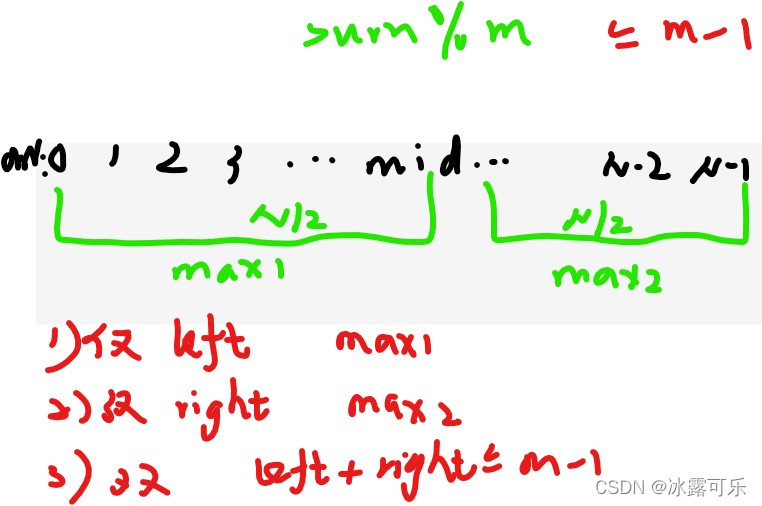 sum%m ≤ m-1
arr:0 1 2 3 ... mid... N-2 N-1
N/2 N/2
max1 max2
1)仅 left max1
2)仅 right max2
3) left+right≤m-1
CSDN @冰露可乐